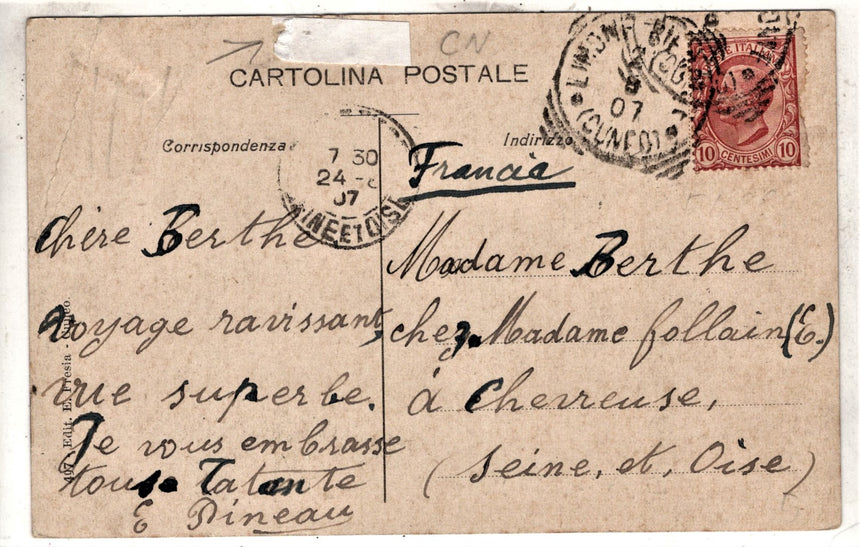 CN
CARTOLINA POSTALE
Corrispondenza
Indirizzo
7 30
24 -8
07
SEINE ET OISE
LIMONE
07
(CUNEO)
POSTE ITALIANE
10 CENTESIMI 10
Francia
Chère Berthe
Voyage ravissant,
vue superbe.
Je vous embrasse
tous. Ta tante
E Pineau
Madame Berthe
chez Madame follain (E.)
à Chevreuse,
(Seine, et, Oise)
497 - Edit. E. Fresia - Cuneo.